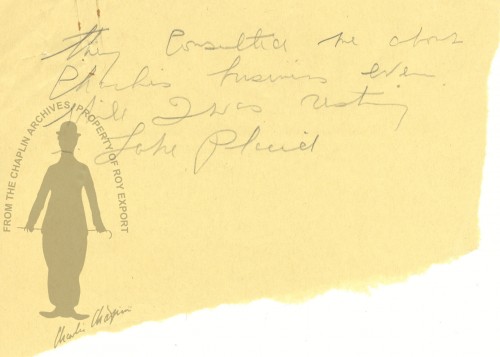 they consulted me about
Charlie's business even
while I was resting
Lake Placid
FROM THE CHAPLIN ARCHIVES, PROPERTY OF ROY EXPORT
Charlie Chaplin